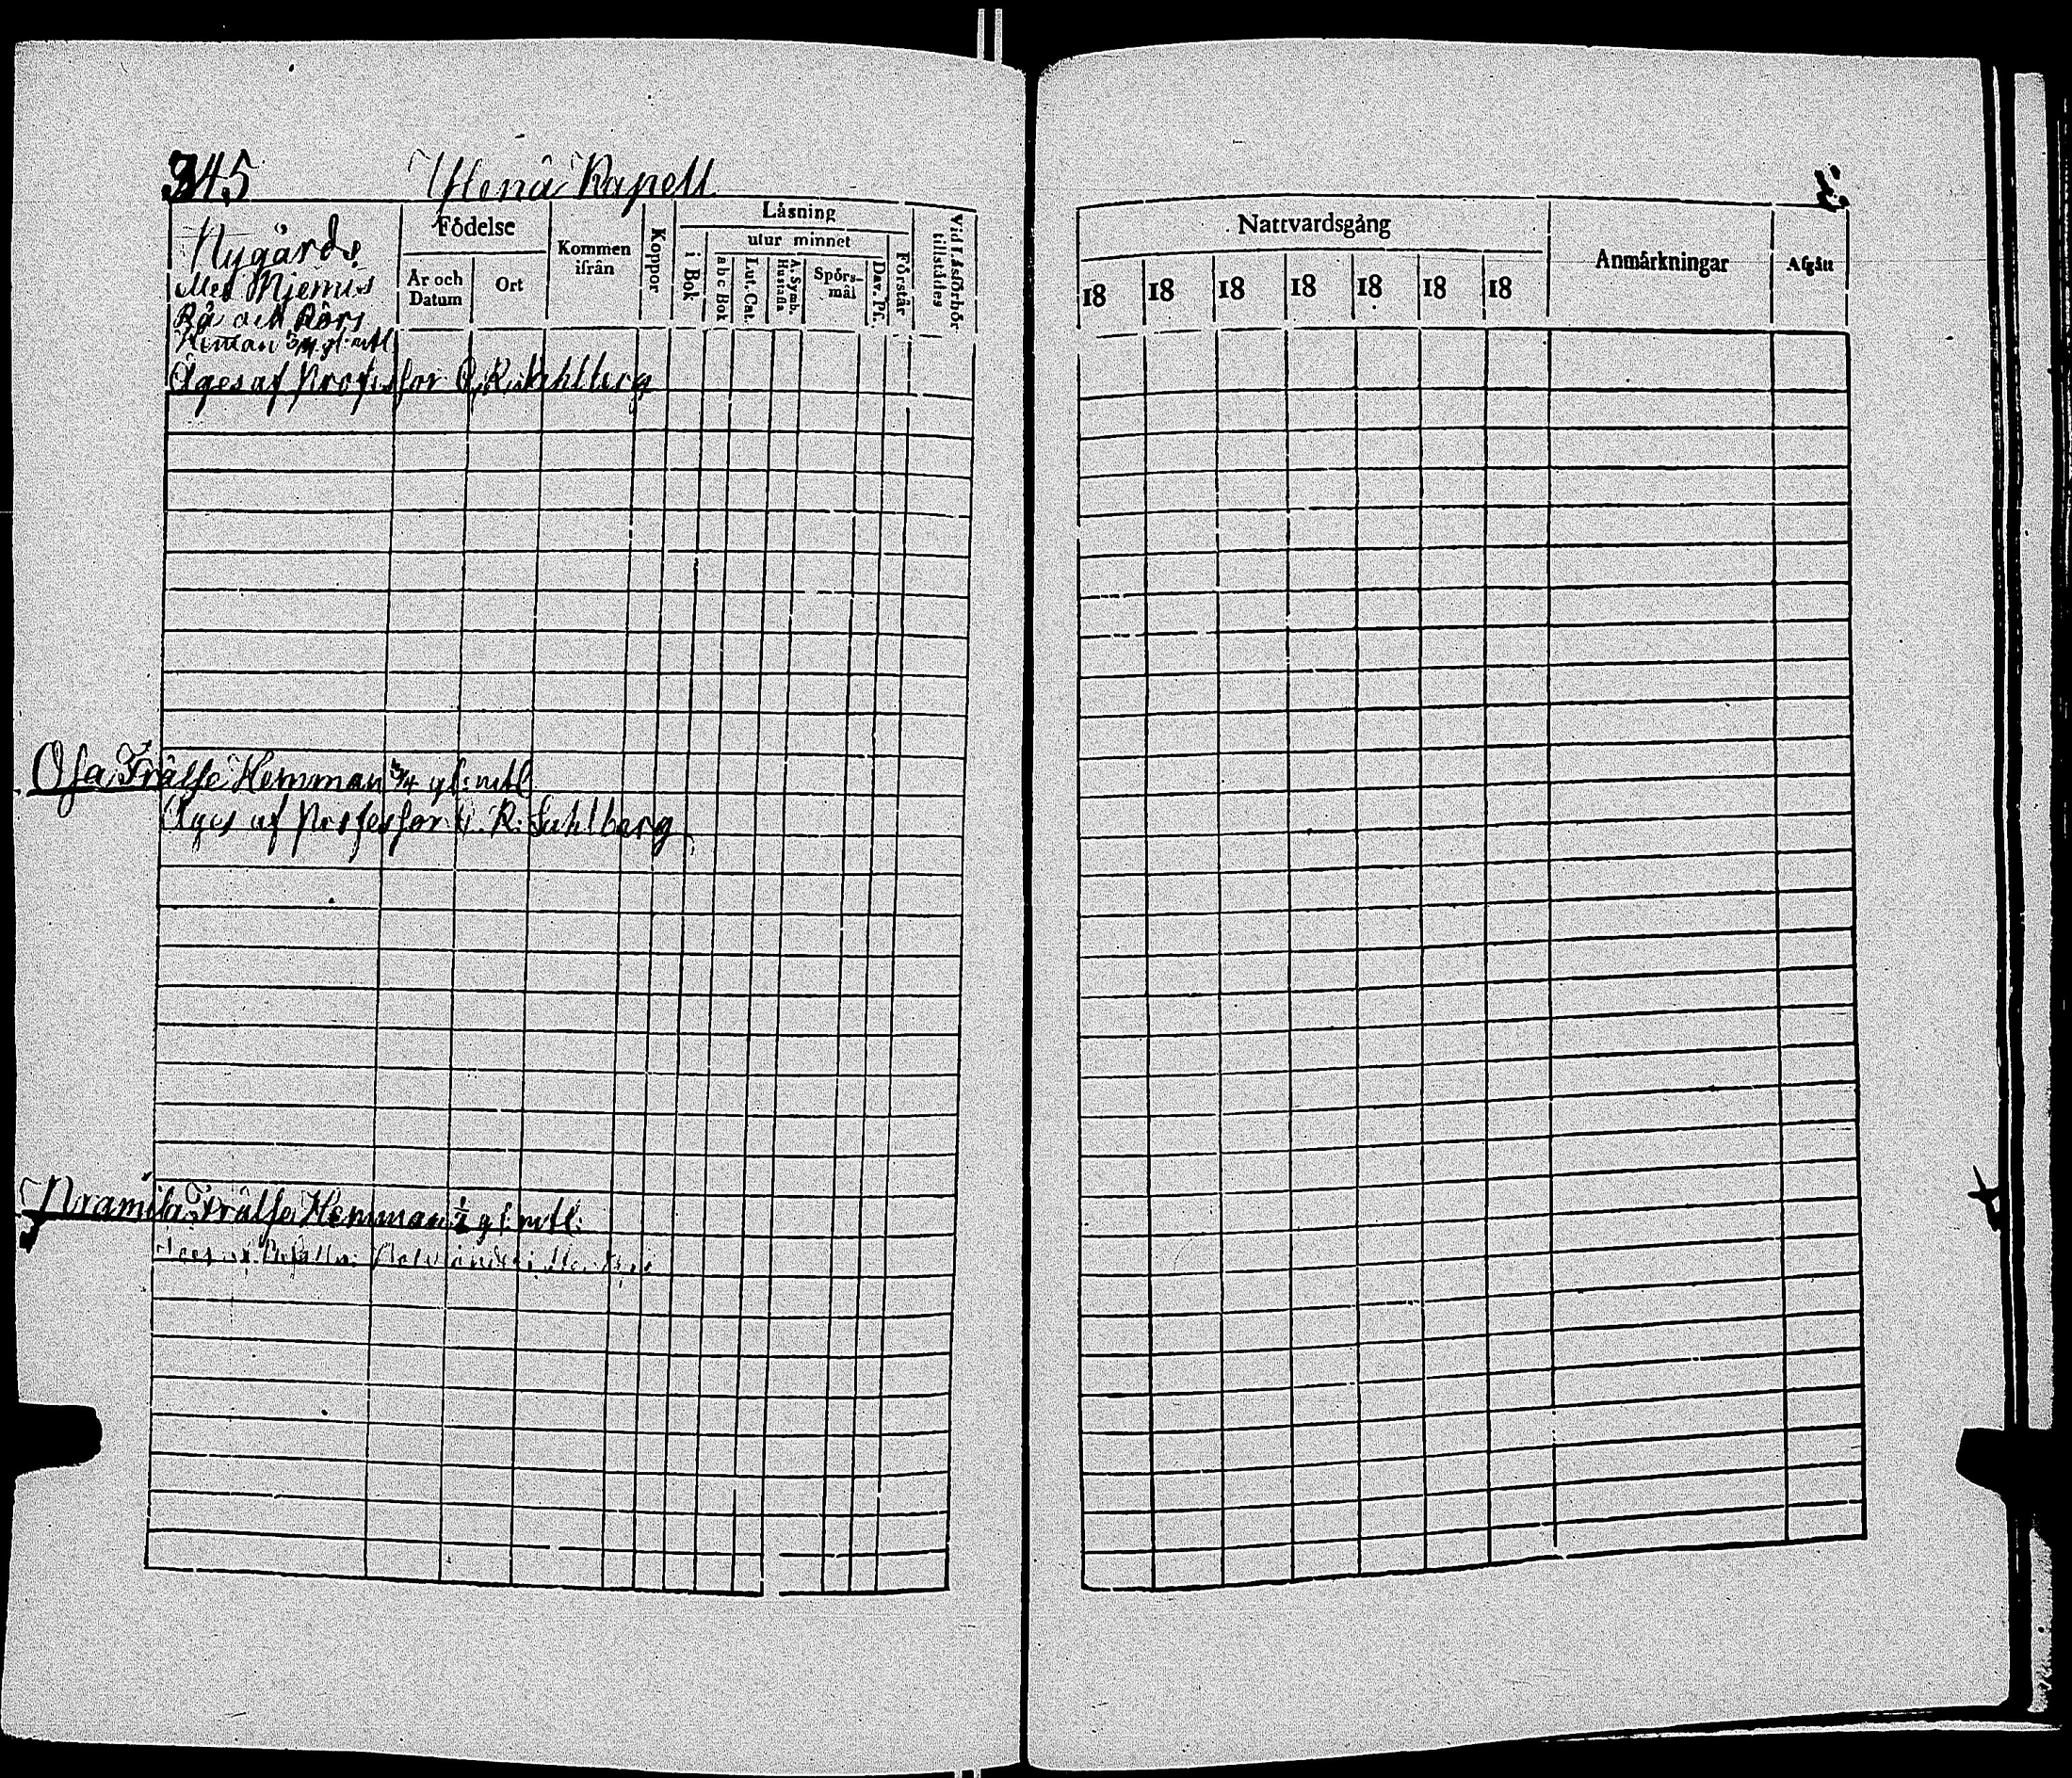 345 Ylenä Kapell
Nygårds
Med Mjemis
Rå och Rörs
Heman 3/4 gl: mtl
Äges af Professor C. R. Sahlberg
Födelse
År och Datum
Ort
Kommen ifrån
Koppor
Läsning
i Bok
utur minnet
a b c Bok
Lut. Cat.
A. Symb. Hustafla
Spörs-mål
Dav. Ps.
Förstår
Vid Läsförhör tillstädes
Osa Frälse Hemman 3/4 gl: mtl
Äges af Professor C. R. Sahlberg
Frälse Hemman 1/2 gl. mtl:
Nattvardsgång
18 18 18 18 18 18 18
Anmärkningar
Afgått